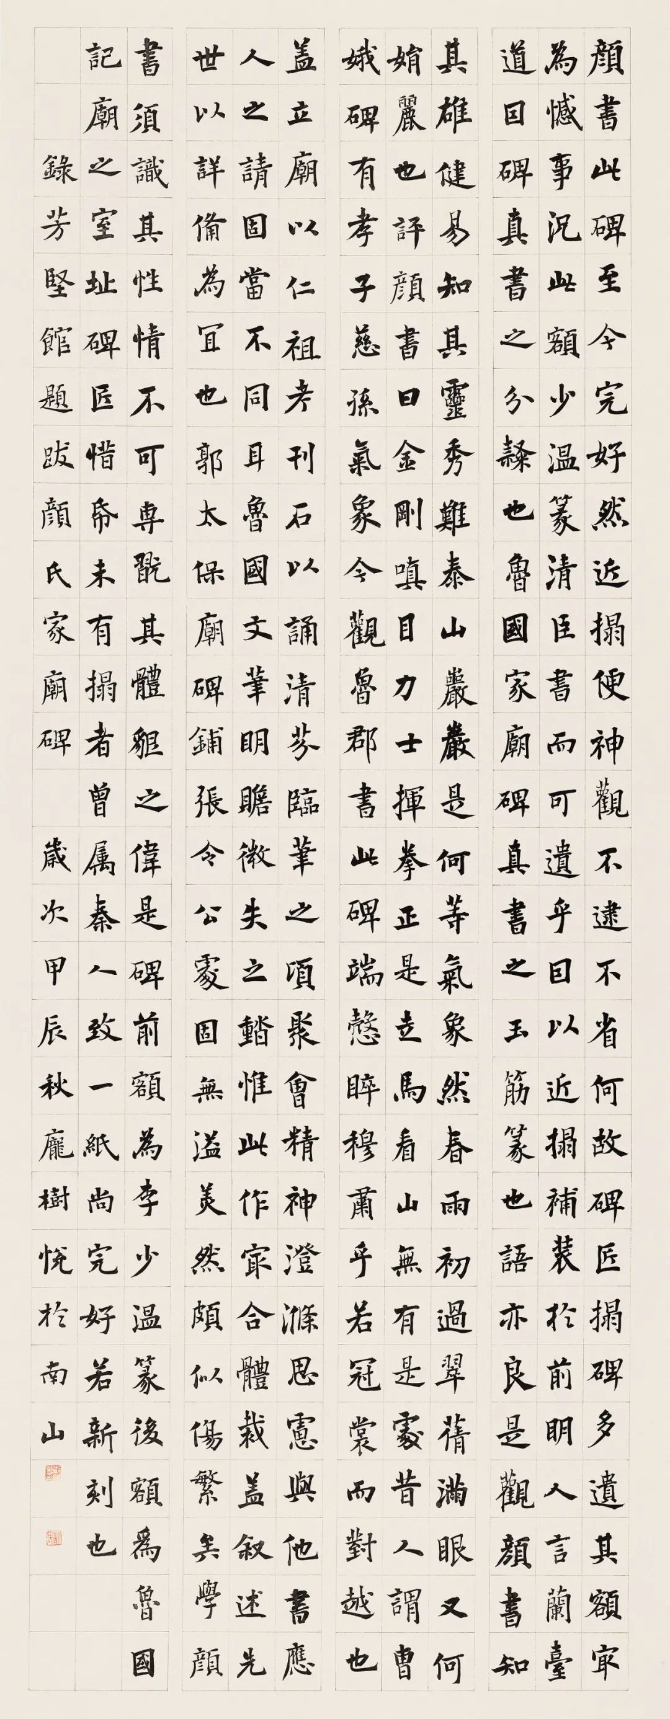 顔書此碑至今完好然近搨便神觀不逮不省何故碑匠搨碑多遺其額㝡
為憾事況此額少温篆清臣書而可遺乎因以近搨補装於前明人言蘭臺
道因碑真書之分隸也魯國家廟碑真書之玉筋篆也語亦良是觀顔書知
其雄健易知其靈秀難泰山巖巖是何等氣象然春雨初過翠蒨滿眼又何
媍麗也評顔書曰金剛嗔目力士揮拳正是走馬看山無有是處昔人謂曹
娥碑有孝子慈孫氣象今觀魯郡書此碑端慤睟穆肅乎若冠裳而對越也
盖立廟以仁祖考刊石以誦清芬臨筆之頃聚會精神澄滌思慮與他書應
人之請固當不同耳魯國文筆明贍微失之䜚惟此作㝡合體裁盖叙述先
世以詳備為宜也郭太保廟碑鋪張令公處固無溢美然頗似傷繁矣學顔
書須識其性情不可専翫其體貌之偉是碑前額為李少温篆後額為魯國
記廟之室址碑匠惜帋未有搨者曽属秦人致一紙尚完好若新刻也
錄芳堅館題跋顔氏家廟碑 歲次甲辰秋龐樹悅於南山